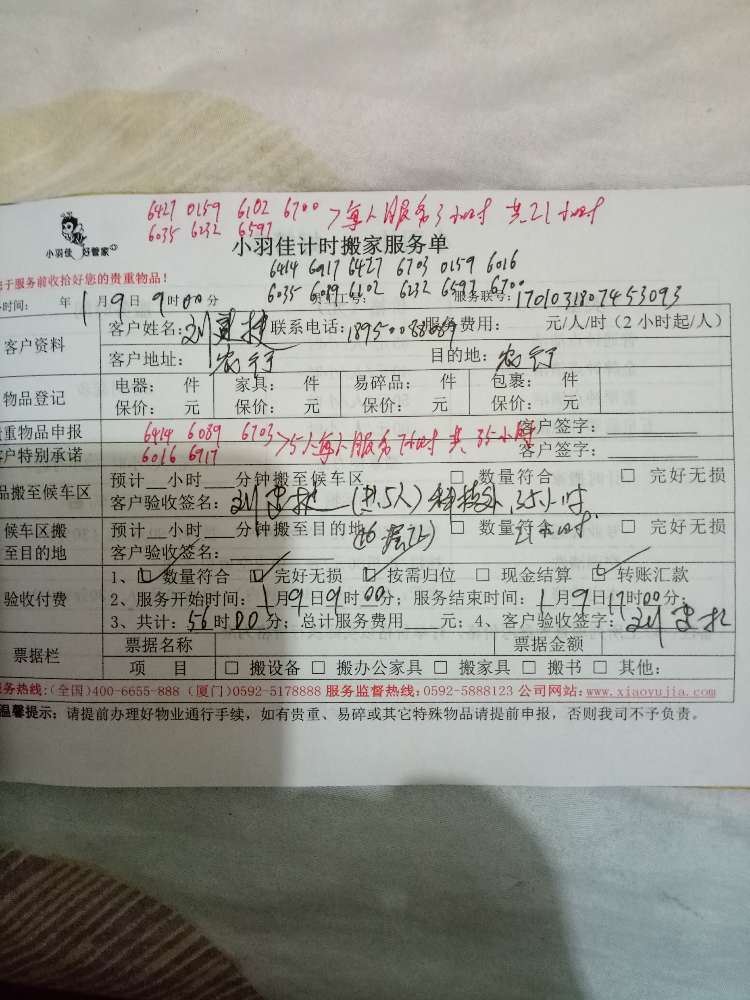 6427 0159 6102 6700 >每人服务3小时 共21小时
6035 6232 6597
小羽佳 好管家
小羽佳计时搬家服务单
于服务前收拾好您的贵重物品!
6414 6917 6427 6703 0159 6016
6035 6089 6102 6232 6597 6700
时间: 年1月9日9时00分 员工工号: 服务联号:1701031807453093
客户资料
客户姓名:刘 联系电话:18950088889 服务费用: 元/人/时(2小时起/人)
客户地址:农行 目的地:农行
物品登记
电器: 件 家具: 件 易碎品: 件 包裹: 件
保价: 元 保价: 元 保价: 元 保价: 元
重物品申报 6414 6089 6703 >5人每人服务7小时 共35小时 客户签字:
户特别承诺 6016 6917 客户签字:
品搬至候车区
预计__小时___分钟搬至候车区 □ 数量符合 □ 完好无损
客户验收签名:刘 (共5人) 35小时
候车区搬至目的地
预计__小时___分钟搬至目的地 □ 数量符合 □ 完好无损
客户验收签名: 21小时
验收付费
1、☑ 数量符合 ☑ 完好无损 ☑ 按需归位 □ 现金结算 ☑ 转账汇款
2、服务开始时间:1月9日9时00分;服务结束时间:1月9日17时00分;
3、共计:56时00分;总计服务费用___元;4、客户验收签字:刘
票据栏
票据名称 票据金额
项 目 □ 搬设备 □ 搬办公家具 □ 搬家具 □ 搬书 □ 其他:
务热线:(全国)400-6655-888 (厦门)0592-5178888 服务监督热线:0592-5888123 公司网站:www.xiaoyujia.com
温馨提示:请提前办理好物业通行手续,如有贵重、易碎或其它特殊物品请提前申报,否则我司不予负责。